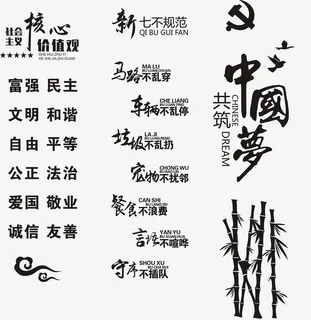 社会
主义
核心
价值观
SHE HUI ZHU YI
HE XIN JIA ZHI GUAN
富强 民主
文明 和谐
自由 平等
公正 法治
爱国 敬业
诚信 友善
新 七不规范
QI BU GUI FAN
马路 MA LU
不乱穿
车辆 CHE LIANG
不乱停
垃圾 LA JI
不乱扔
宠物 CHONG WU
不扰邻
餐食 CAN SHI
不浪费
言语 YAN YU
不喧哗
守序 SHOU XU
不插队
共筑
中國夢
CHINESE
DREAM